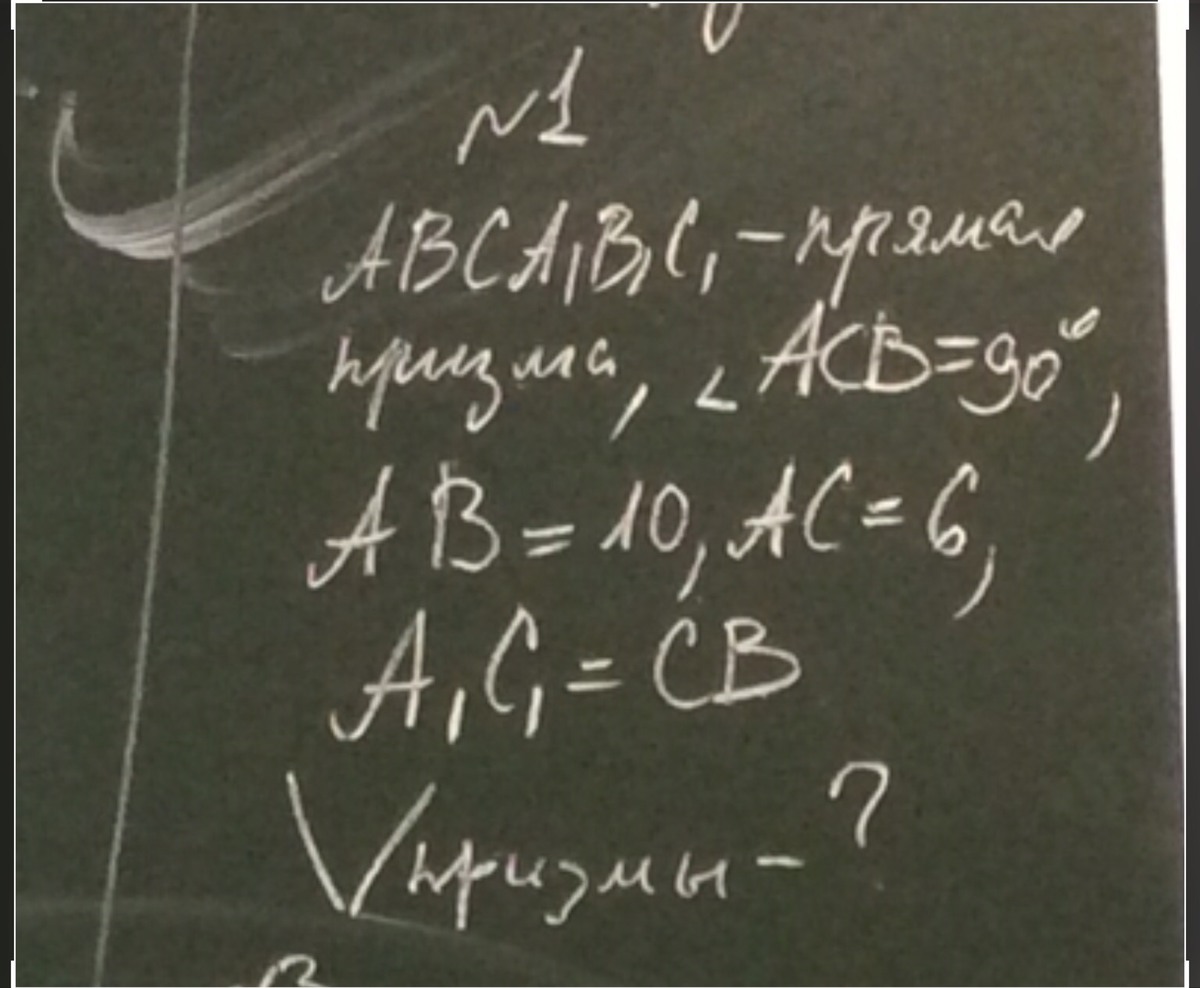 №1
ABCA₁B₁C₁ – прямая
призма, ∠ ACB=90°,
AB = 10, AC = 6,
A₁C₁ = CB
Vпризмы – ?